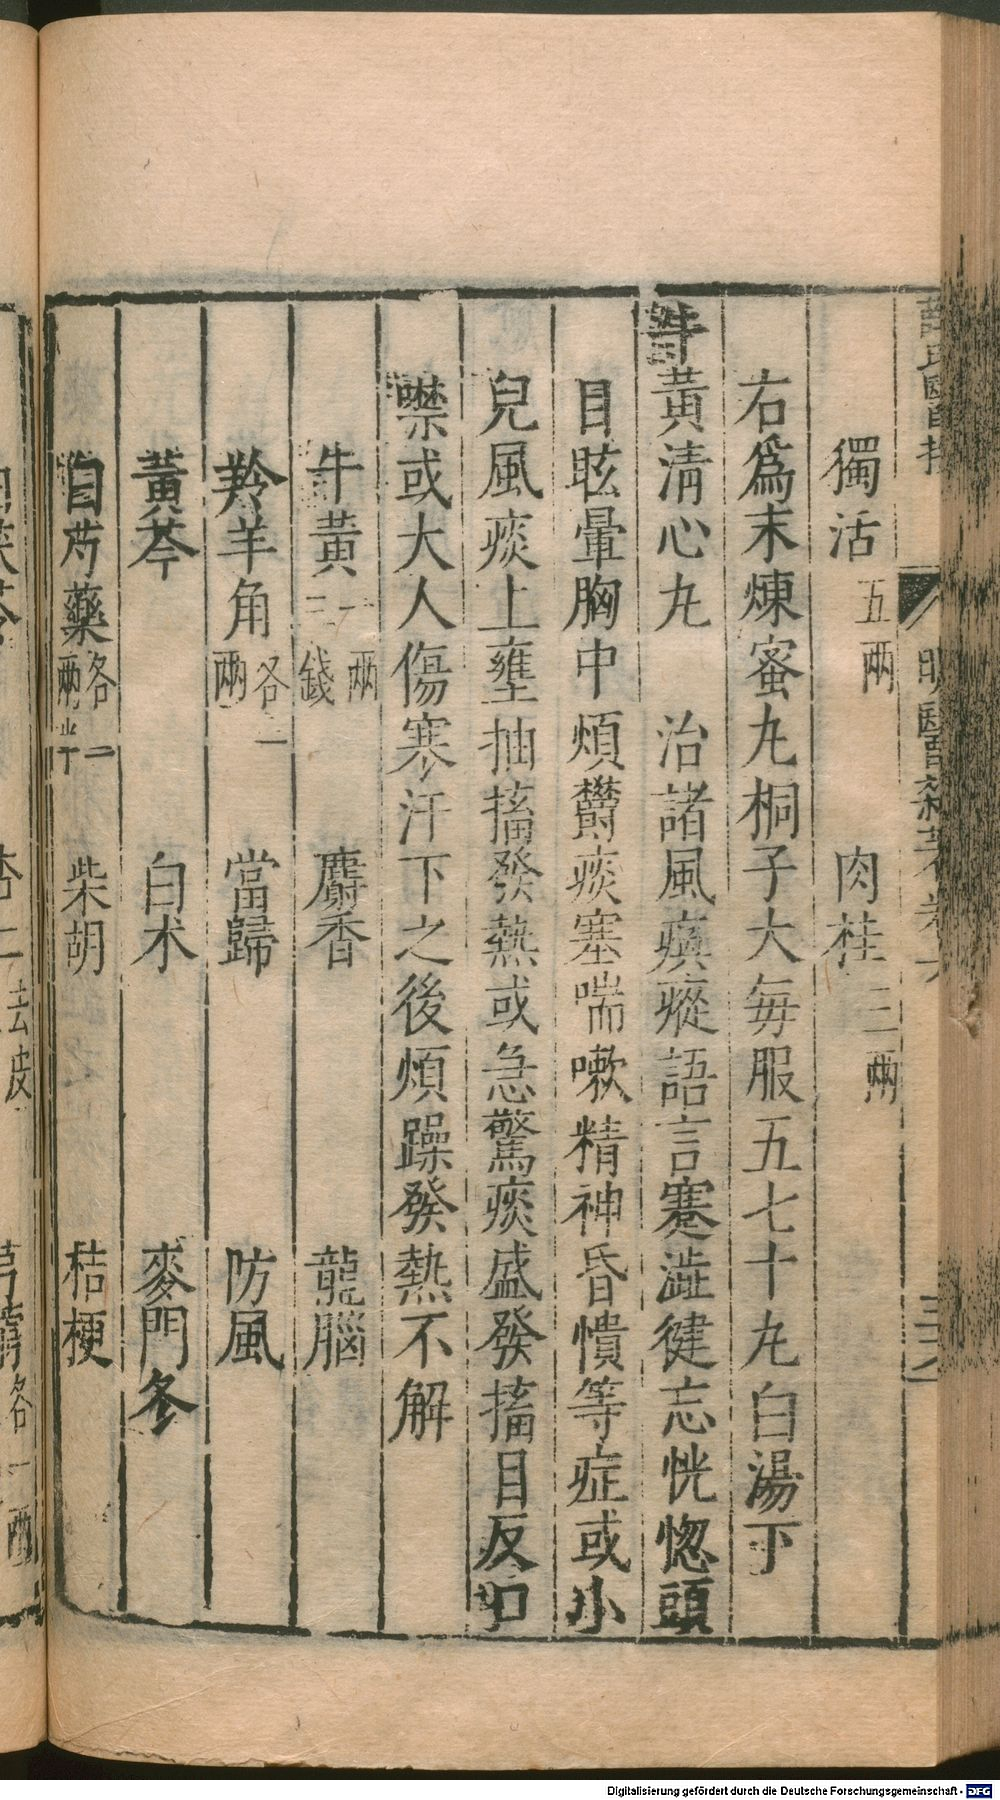 獨活五兩 肉桂二兩
右爲末煉蜜丸桐子大每服五七十丸白湯下
牛黃清心丸 治諸風瘓瘲語言蹇澁健忘恍惚頭
目眩暈胸中煩欝痰塞喘嗽精神昏憒等症或小
兒風痰上壅抽搐發熱或急驚痰盛發搐目反口
噤或大人傷寒汗下之後煩躁發熱不解
牛黃一兩二錢 麝香 龍腦
羚羊角各一兩 當歸 防風
黃芩 白朮 麥門冬
白芍藥各一兩半 柴胡 桔梗
杏仁去皮
芎藭各一兩
Digitalisierung gefördert durch die Deutsche Forschungsgemeinschaft - DFG